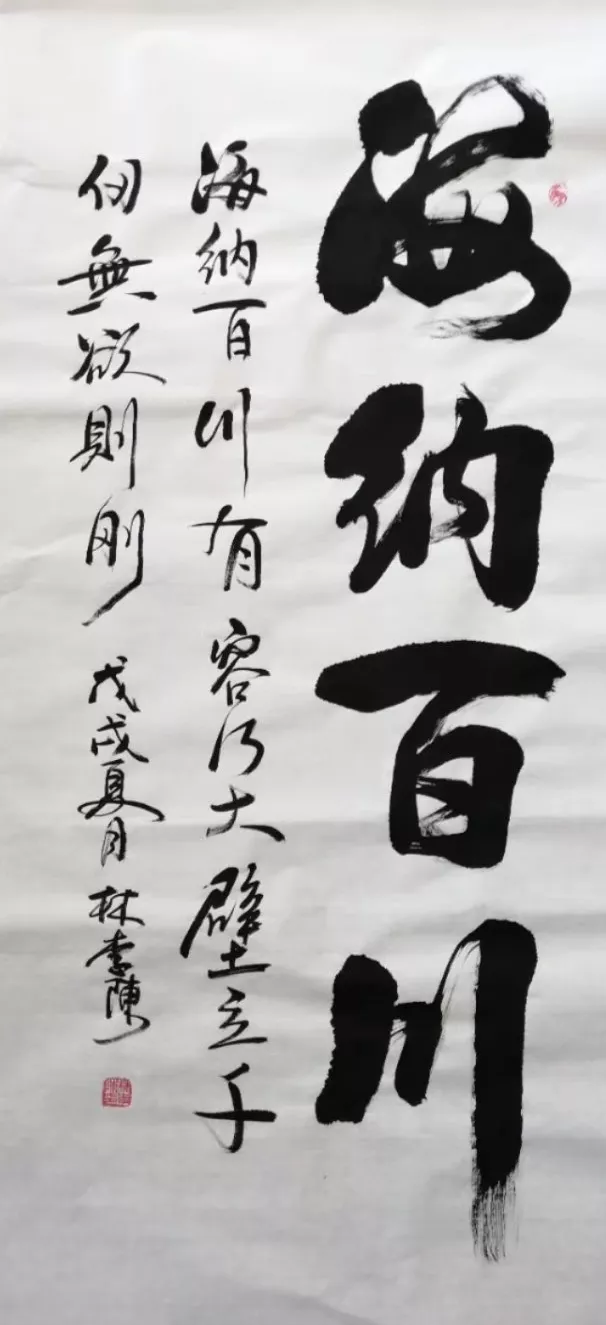 海纳百川
海纳百川有容乃大壁立千
仞無欲則刚戊戌夏月林李陳